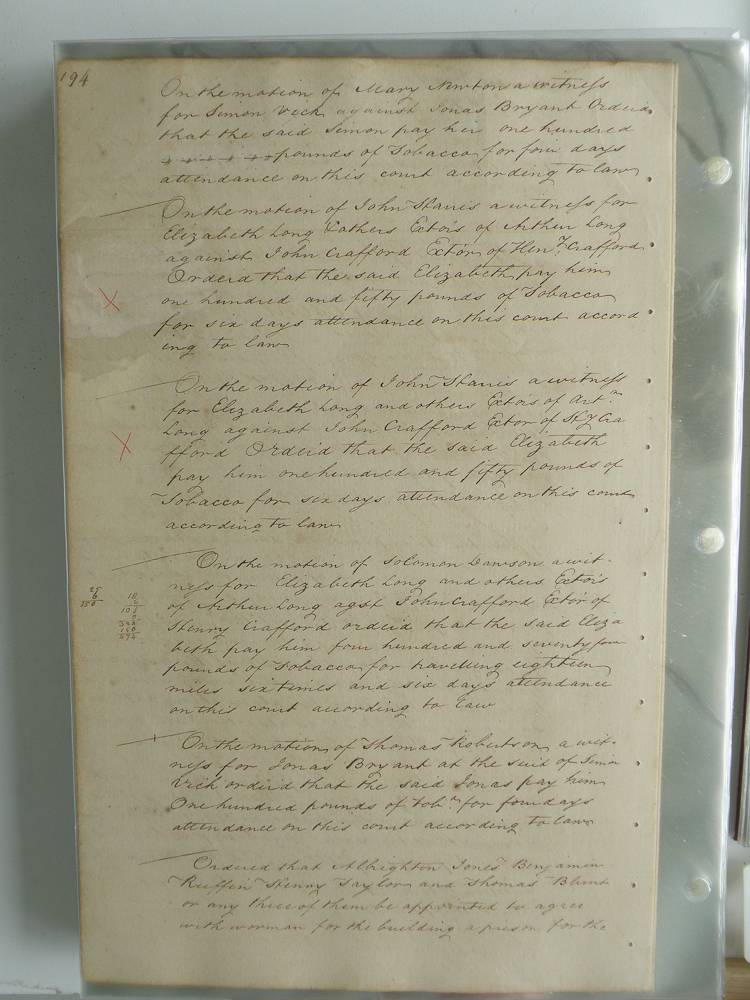 194
On the motion of Mary Newton a witness
for Simon Vick against Jonas Bryant Ordered
that the said Simon pay her one hundred
pounds of Tobacco for four days
attendance on this court according to law
On the motion of John a witness for
Elizabeth Long & others Extors of Arthur Long
against John Crafford Extor of Hen.y Crafford
Orderd that the said Elizabeth pay him
one hundred and fifty pounds of Tobacco
for six days attendance on this court accord
ing to law
On the motion of John a witness
for Elizabeth Long and others Extors of Art.r
Long against John Crafford Extor of Hy Cra
fford Orderd that the said Elizabeth
pay him one hundred and fifty pounds of
Tobacco for six days attendance on this court
according to law
On the motion of Solomon Dawson a wit-
ness for Elizabeth Long and others Extors
of Arthur Long agst John Crafford Extor of
Henry Crafford orderd that the said Eliza
beth pay him four hundred and seventy four
pounds of Tobacco for travelling eighteen
miles six times and six days attendance
on this court according to law
25
6
150
18
6
108
3
324
150
474
On the motion of Thomas Robertson a wit-
ness for Jonas Bryant at the suit of Simon
Vick orderd that the said Jonas pay him
One hundred pounds of Tob.o for four days
attendance on this court according to law
Ordered that Albrighton Jones Benjamin
Ruffin Henry Taylor and Thomas Blunt
or any three of them be appointed to agree
with worman for the building a prison for the